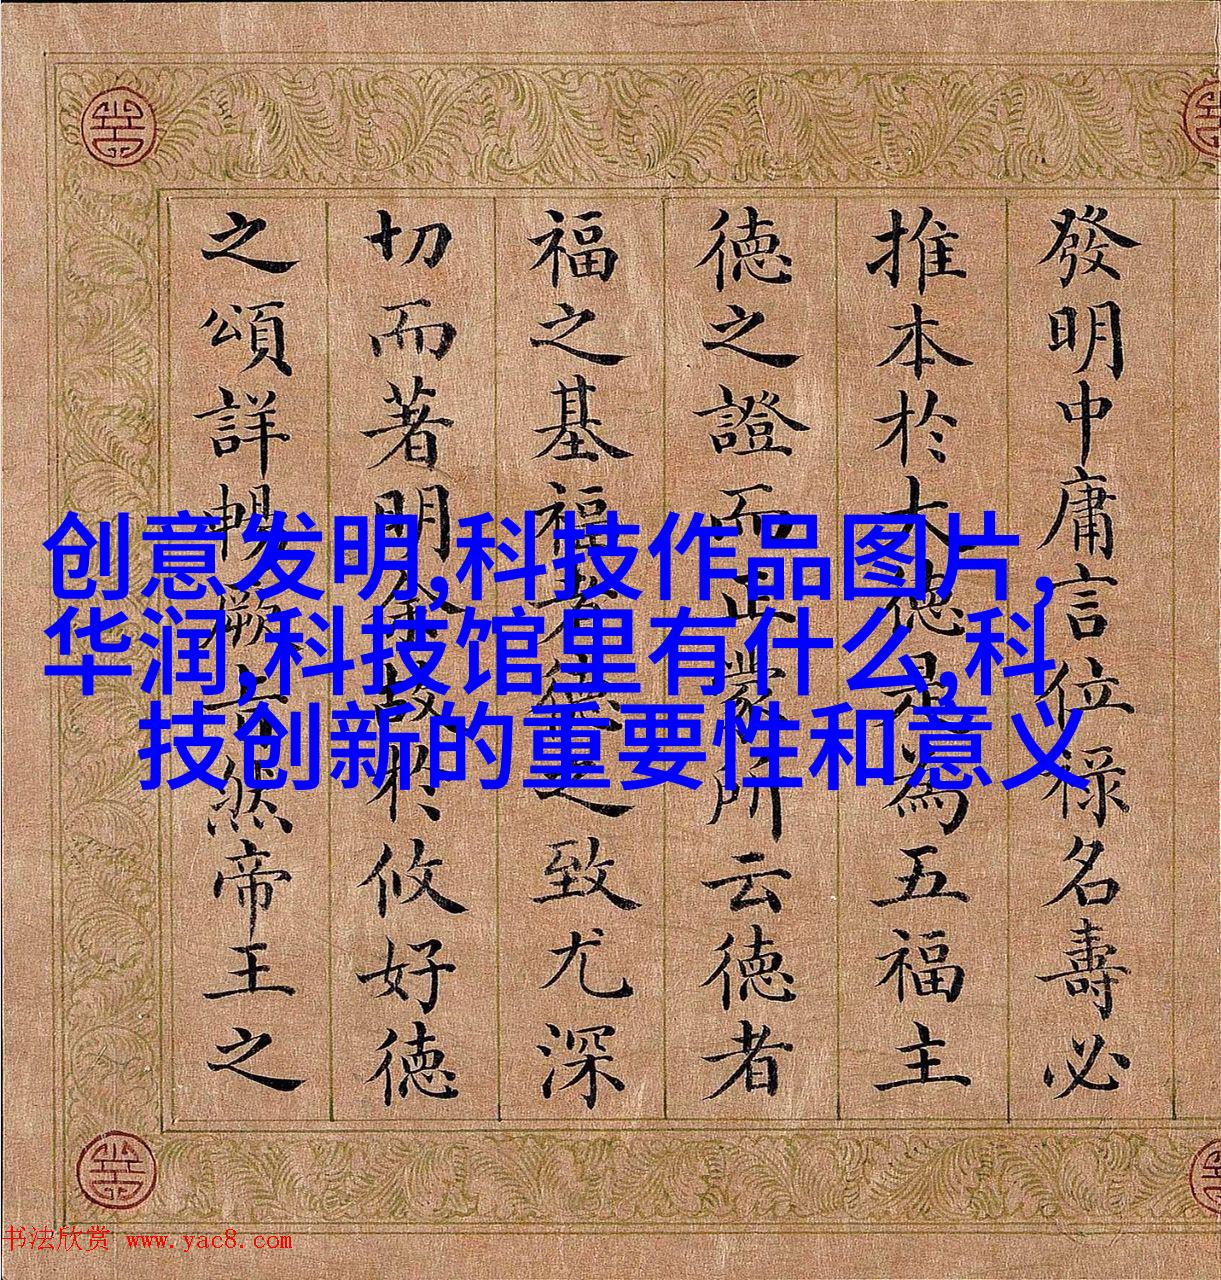 發明中庸言位祿名壽必
推本於大德是為五福主
德之證而正蒙所云德者
福之基福者德之致尤深
切而著明余故於攸好德
之頌詳暢厥旨然帝王之
创意发明,科技作品图片,
华润,科技馆里有什么,科
技创新的重要性和意义
书法欣赏 www.yac8.com